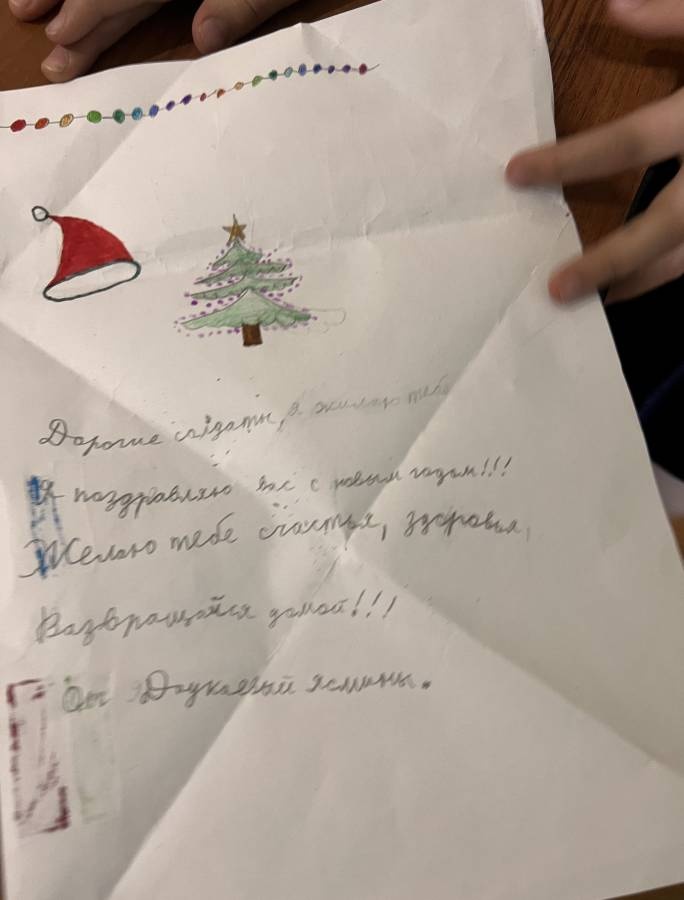 Дорогие солдаты, я жилаю тебе
Я поздравляю вас с новым годом!!!
Желаю тебе счастья, здоровья,
Вазвращайся домой!!!
От Ясмины.